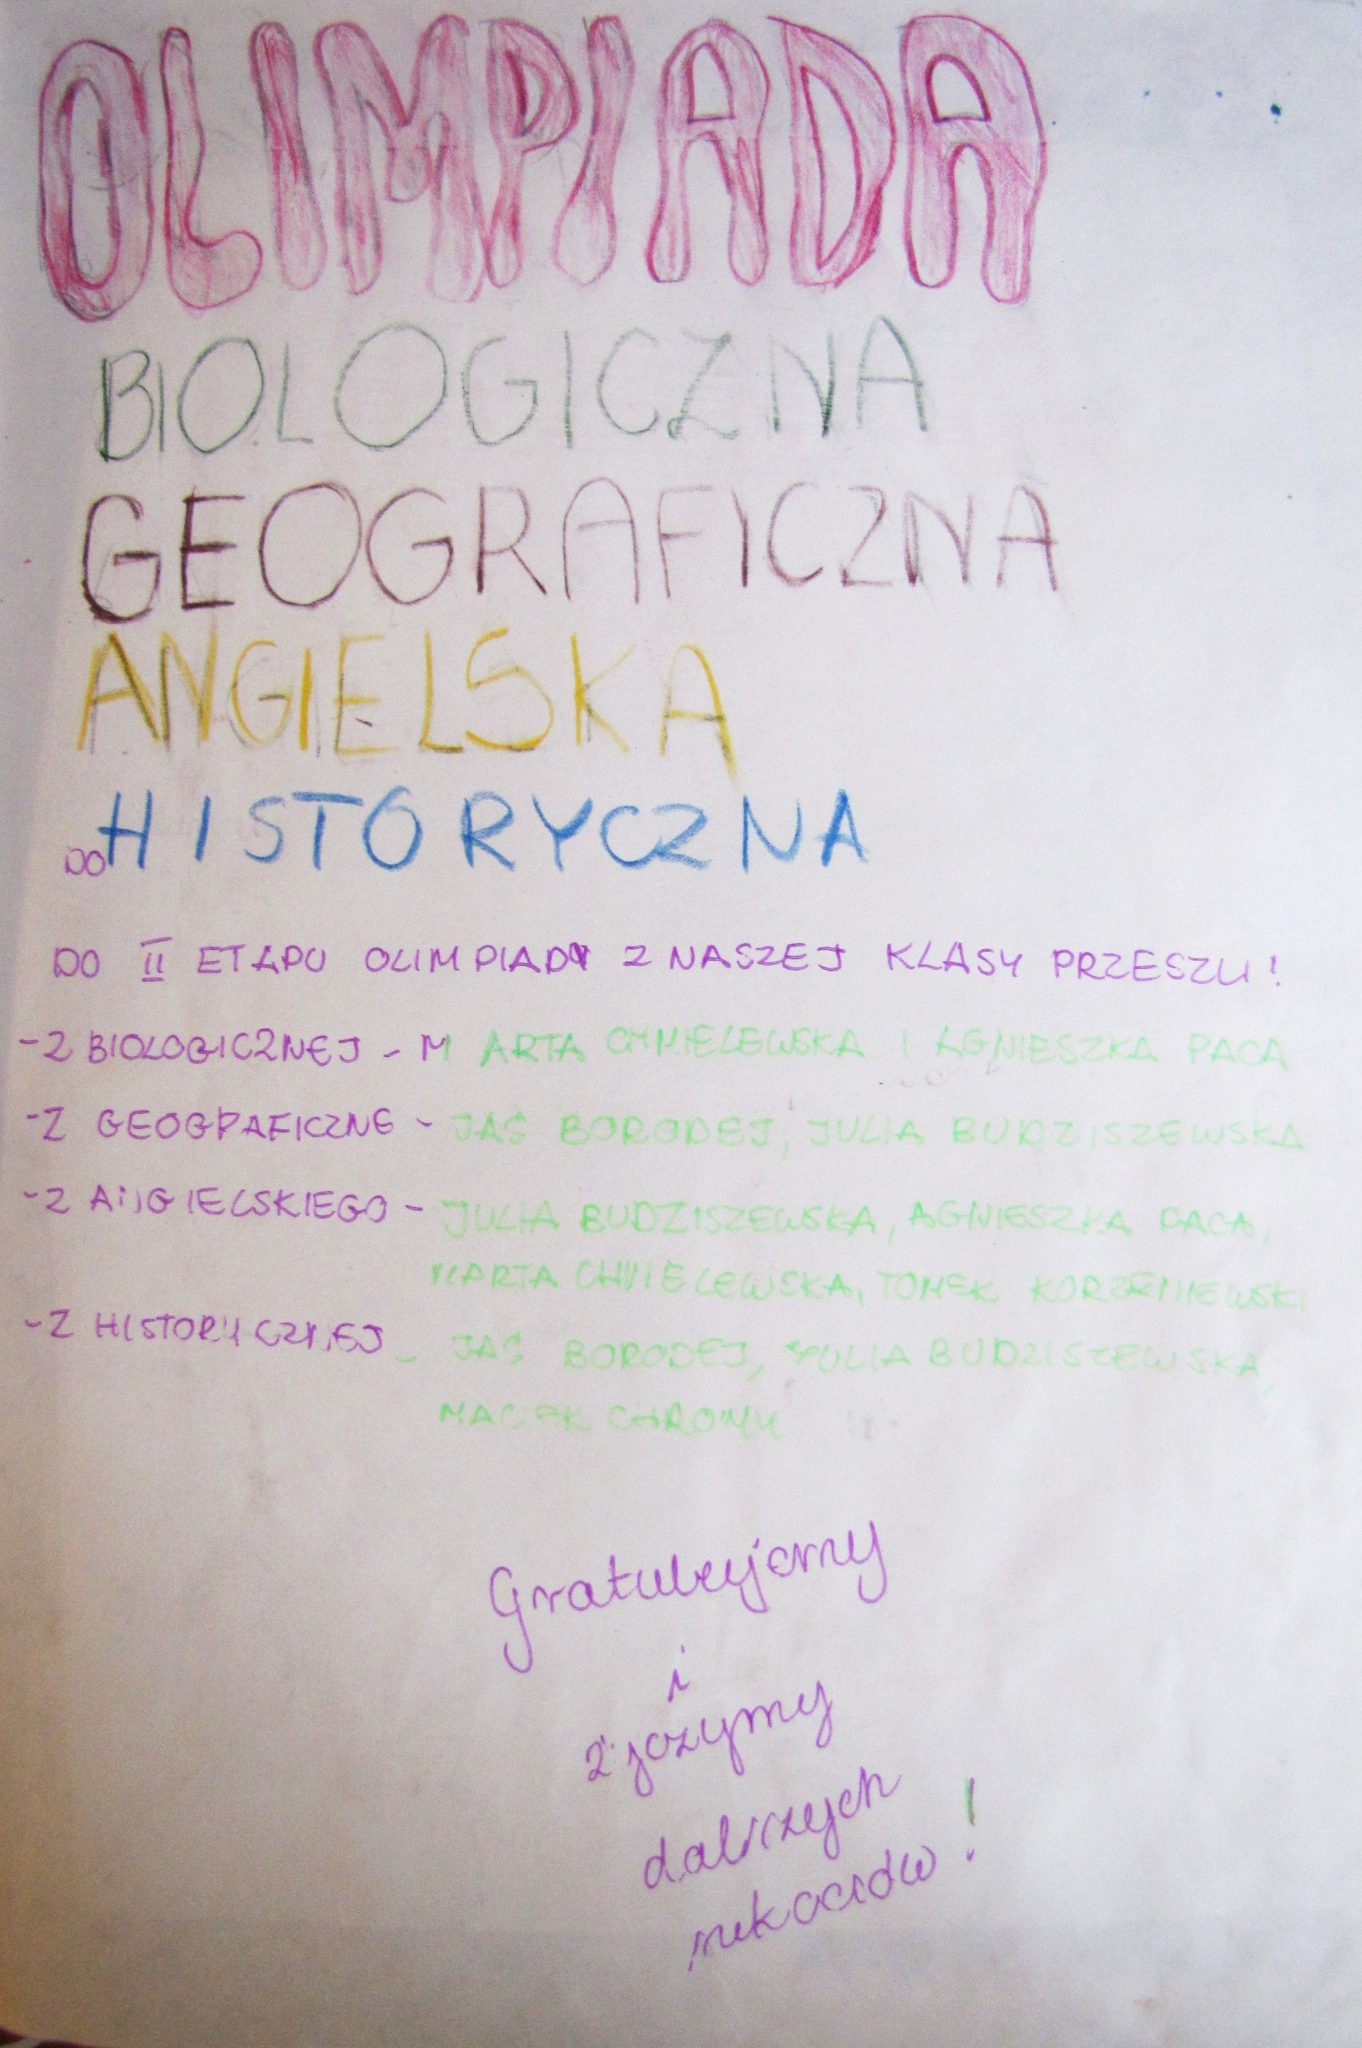 OLIMPIADA
BIOLOGICZNA
GEOGRAFICZNA
ANGIELSKA
HISTORYCZNA
DO
DO II ETAPU OLIMPIADY Z NASZEJ KLASY PRZESZLI!
-Z BIOLOGICZNEJ - MARTA CHMIELEWSKA I AGNIESZKA PACA
-Z GEOGRAFICZNE - JAŚ BORODEJ, JULIA BUDZISZEWSKA
-Z ANGIELSKIEGO - JULIA BUDZISZEWSKA, AGNIESZKA PACA,
MARTA CHMIELEWSKA, TOMEK KORZENIEWSKI
-Z HISTORYCZNEJ - JAŚ BORODEJ, JULIA BUDZISZEWSKA,
MACIEK CHROMY
Gratulujemy
i
życzymy
dalszych
sukcesów!